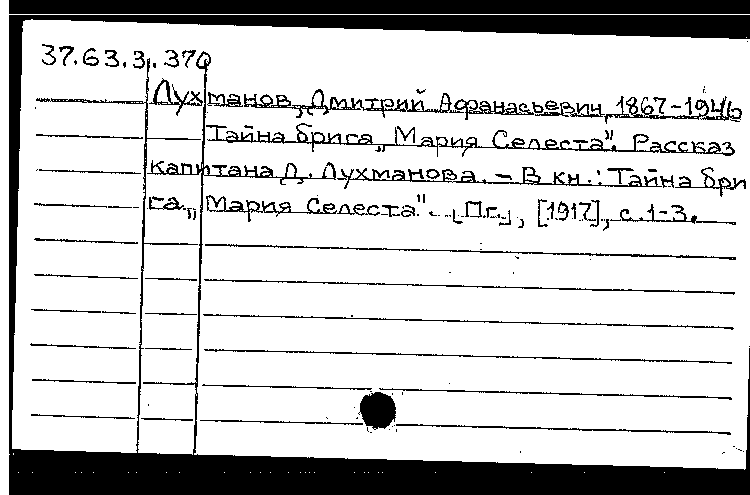 37.63.3.370
Лухманов, Дмитрий Афанасьевич, 1867-1946
Тайна брига „Мария Селеста". Рассказ
капитана Д. Лухманова. - В кн.: Тайна бри
га „Мария Селеста". [Пг.], [1917], с. 1-3.